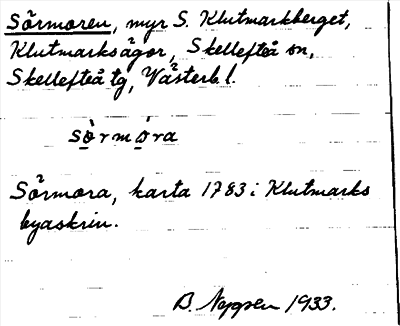 Sörmoren, myr S. Klutmarkberget,
Klutmarksägor, Skellefteå sn,
Skellefteå tg, Västerb l.
sò̱rmó̱ra
Sörmora, karta 1783 i Klutmarks
byaskrin.
1933.